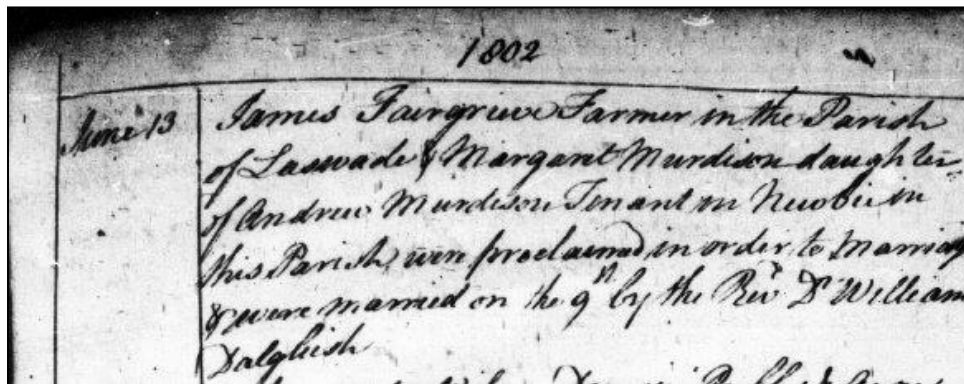 1802
June 13 James Fairgrieve Farmer in the Parish
of Lasswade & Margaret Murdison daughter
of Andrew Murdison Tenant in Newbie in
this Parish were proclaimed in order to Marriage
& were married on the 9th by the Revd Dr William
Dalgliesh